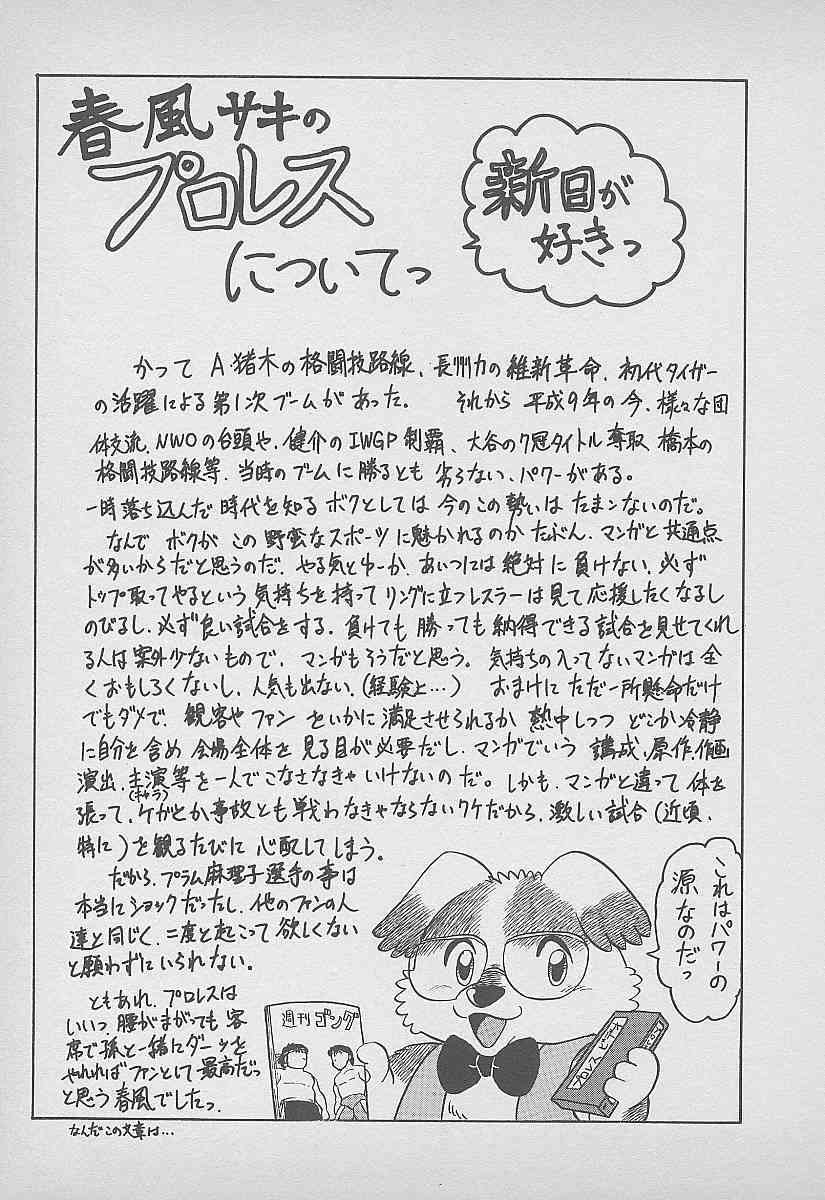 春風サキの
プロレス
についてっ
新日が
好きっ
かって A猪木の格闘技路線、長州力の維新革命、初代タイガー
の活躍による第1次ブームがあった。 それから平成9年の今、様々な団
体交流、NWOの台頭や、健介のIWGP制覇、大谷の7冠タイトル奪取 橋本の
格闘技路線等、当時のブームに勝るとも劣らない、パワーがある。
一時落ち込んだ時代を知るボクとしては今のこの勢いはたまンないのだ。
なんで ボクがこの野蛮なスポーツに魅かれるのか たぶん、マンガと共通点
が多いからだと思うのだ。やる気とゆーか、あいつには絶対に負けない、必ず
トップ取ってやるという気持ちを持ってリングに立つレスラーは見て応援したくなるし
のびるし、必ず良い試合をする。負けても勝っても納得できる試合を見せてくれ
る人は案外少ないもので、マンガもそうだと思う。気持ちの入ってないマンガは全
くおもしろくないし、人気も出ない、(経験上…) おまけにただ一所懸命だけ
でもダメで、観客やファンをいかに満足させられるか 熱中しつつ どこか冷静
に自分を含め 会場全体を見る目が必要だし、マンガでいう 講成、原作、作画
演出、主演等を一人でこなさなきゃいけないのだ。しかも、マンガと違って体を
(キャラ)
張って、ケガとか事故とも戦わなきゃならないワケだから、激しい試合(近頃、
特に)を観るたびに心配してしまう。
だから、プラム麻理子選手の事は
本当にショックだったし、他のファンの人
達と同じく、二度と起こって欲しくない
と願わずにいられない。
ともあれ、プロレスは
いいっ、腰がまがっても客
席で孫と一緒にダーッを
やれればファンとして最高だっ
と思う春風でしたっ
これはパワーの
源なのだっ
週刊ゴング
プロレスビデオ
なんだこの文章は…